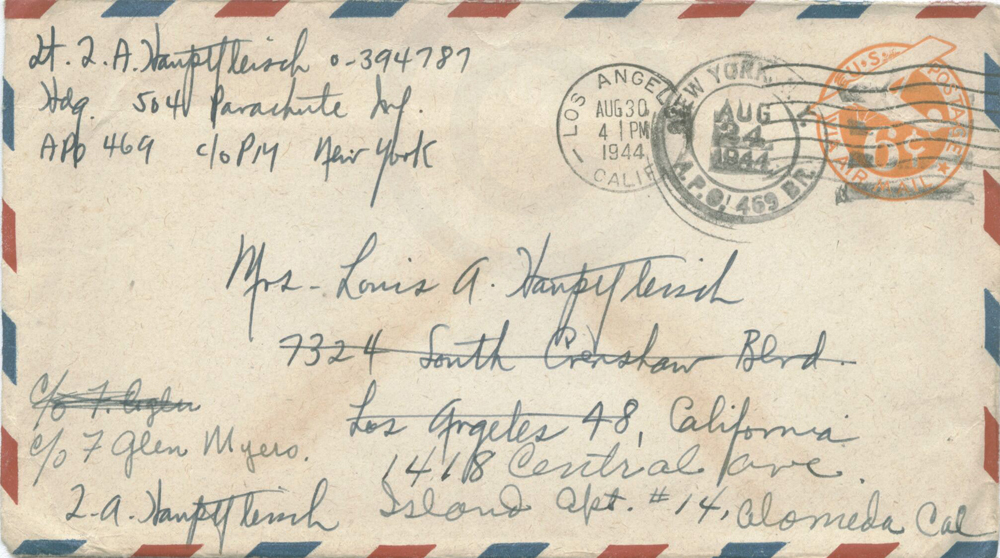 Lt. L. A. Hauptfleisch O-394787
Hdq. 504 Parachute Inf.
APO 469 c/o PM New York
LOS ANGELES
AUG 30
4 1 PM
1944
CALIF
NEW YORK, N.Y.
AUG
24
1944
A.P.O. 469 BR.
U.S. POSTAGE
6¢
VIA AIR MAIL
Mrs. Louis A. Hauptfleisch
7324 South Crenshaw Blvd.
Los Angeles 48, California
c/o F.
c/o F Glen Myers.
1418 Central ave.
Island Apt. #14, Alameda Cal
L. A. Hauptfleisch